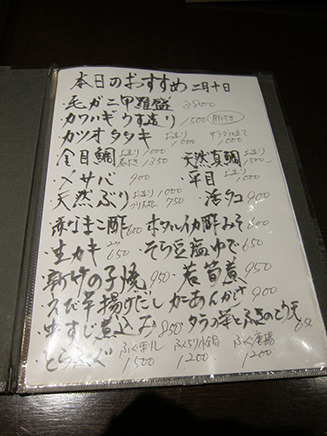 本日のおすすめ 二月十日
・毛ガニ甲羅盛 3800
・カワハギうす造り 1500 肝付
・カツオタタキ お造り 1000 サラダ仕立て 1000
・金目鯛 お造り 1000 1350 天然真鯛 お造り 1500
・〆サバ 900 平目 お造り 1000
・天然ぶり お造り 1000 750 活タコ 900
・赤なまこ酢 600 ホタルイカ酢みそ 600
・生カキ 650 そら豆塩ゆで 650
・新竹の子焼 950 若筍煮 950
・えび芋揚げだし カニあんかけ 900
・牛すじ煮込み 850 タラの芽とふきのとう天
・とらふぐ ふぐ刺し 1500 ふぐちり小鍋 1200 ふぐ唐揚 1200